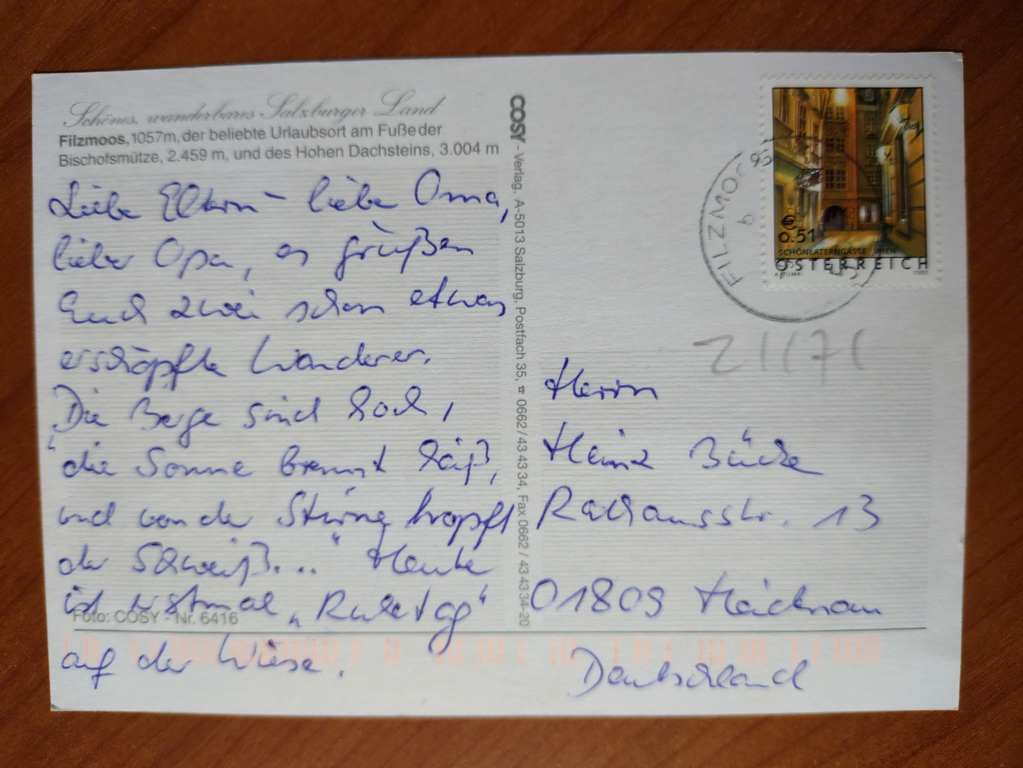 Schönes, wanderbares Salzburger Land
Filzmoos, 1057m, der beliebte Urlaubsort am Fuße der
Bischofsmütze, 2.459 m, und des Hohen Dachsteins, 3.004 m
Liebe Eltern – liebe Oma,
lieber Opa, es grüßen
Euch zwei schon etwas
erschöpfte Wanderer.
"Die Berge sind hoch,
die Sonne brennt heiß,
und von der Stirne tropft
der Schweiß..." Heute
ist erstmal „Ruhetag"
Foto: COSY - Nr. 6416
auf der Wiese.
COSY - Verlag, A-5013 Salzburg, Postfach 35, ☎ 0662/43 43 34, Fax 0662/43 43 34-20
FILZMOOS
€ 0.51
SCHÖNLATERNGASSE, WIEN
ÖSTERREICH
21171
Herrn
Heinz
Rathausstr. 13
01809 Heidenau
Deutschland